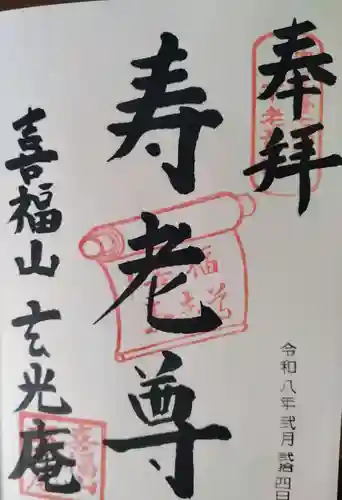 奉拝
寿老尊
喜福山 玄光庵
令和八年弐月弐拾四日